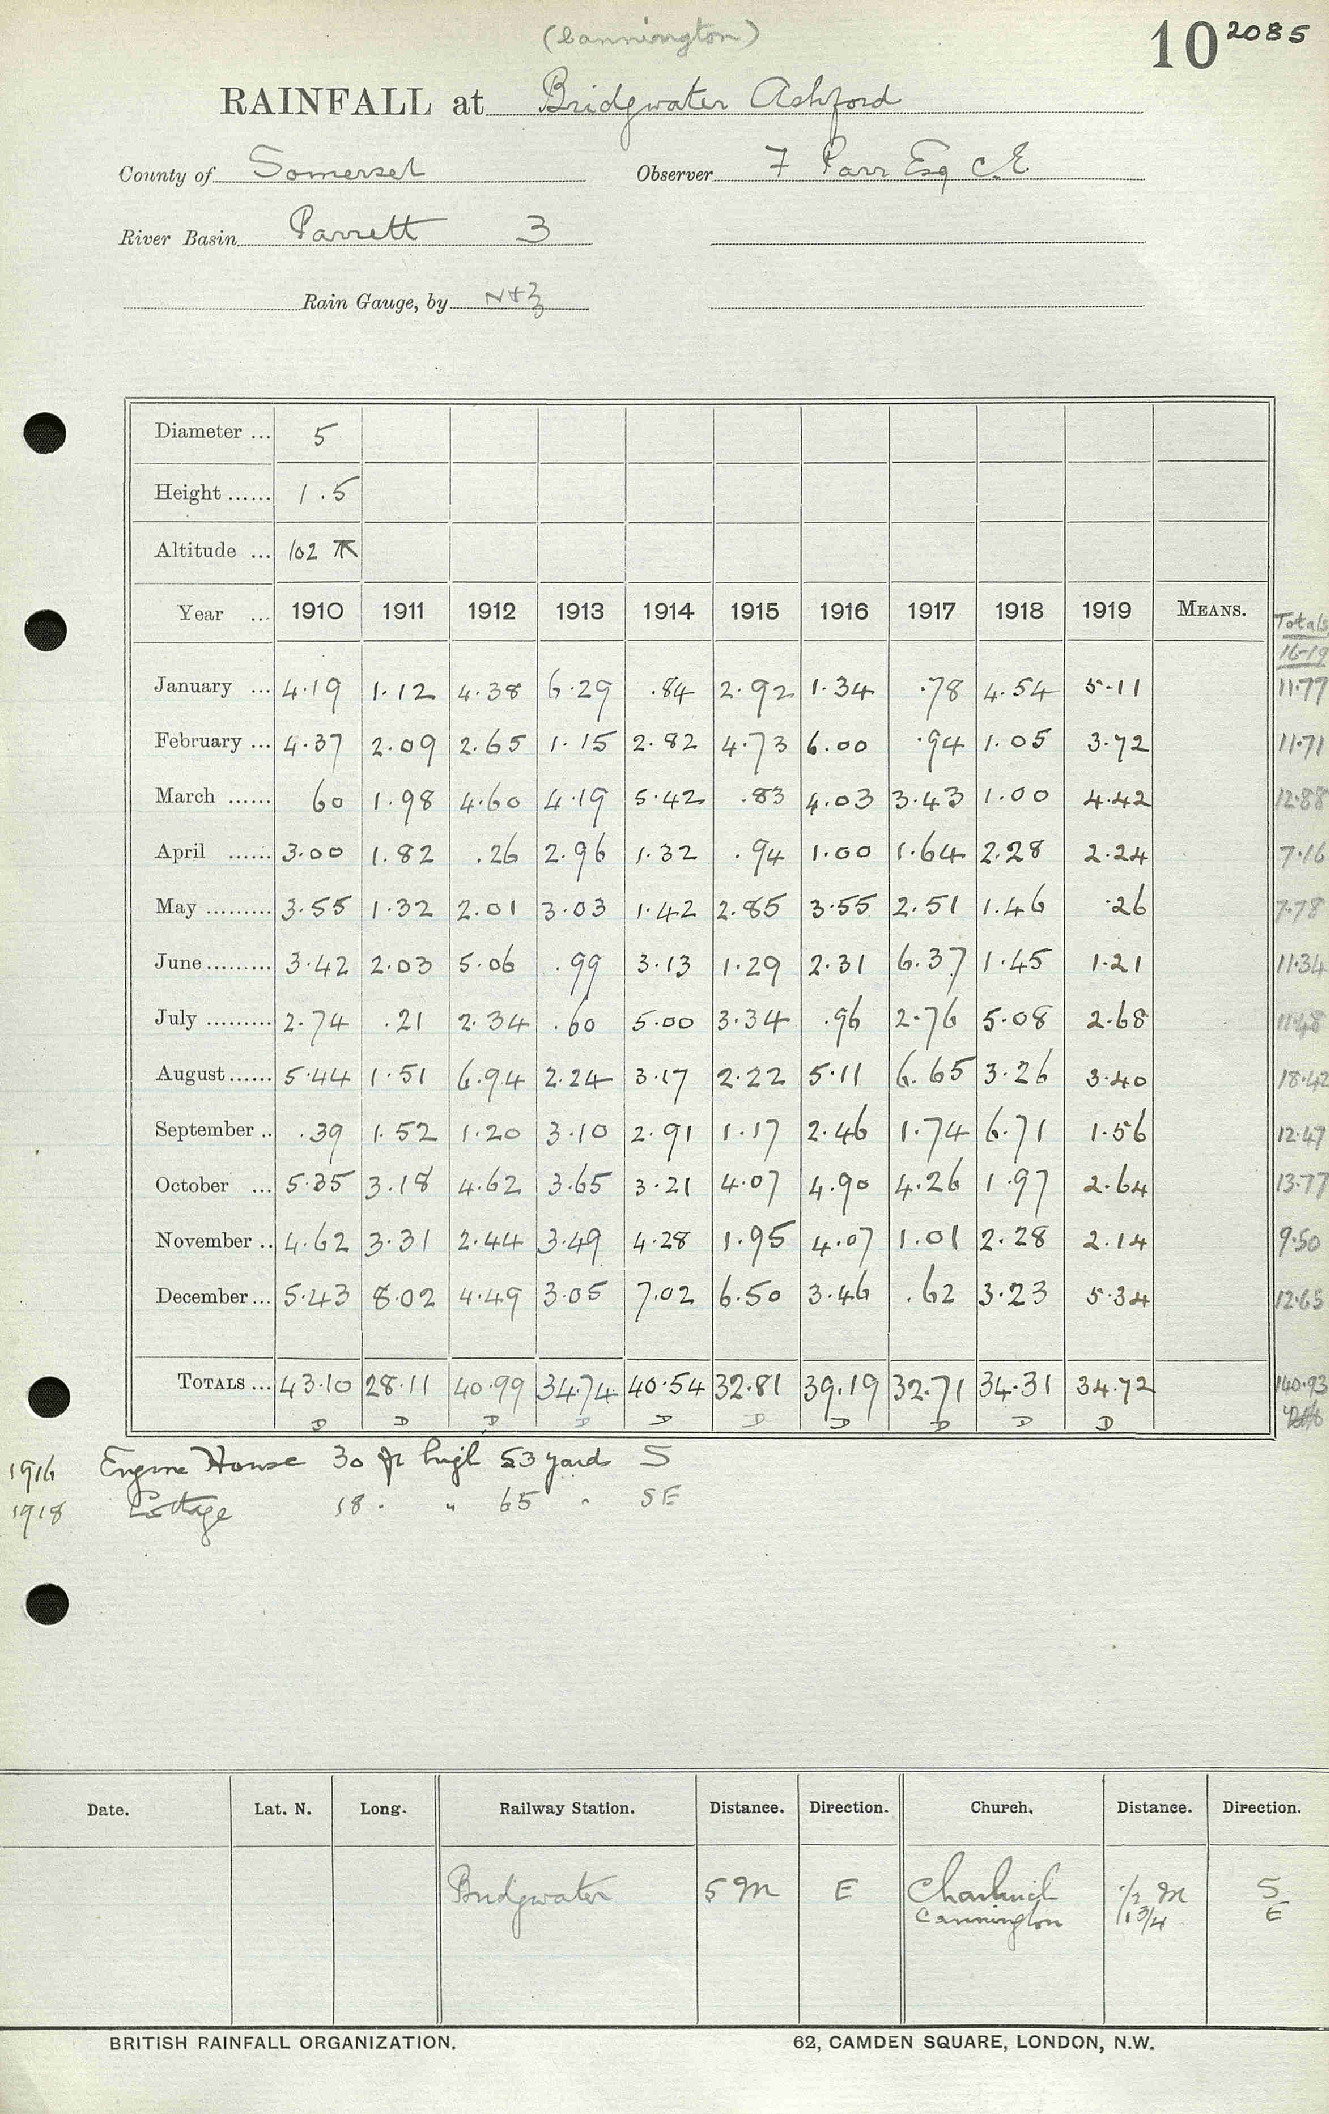 (Cannington)
10 2085
RAINFALL at Bridgwater Ashford
County of Somerset Observer F Parr Esq C.E
River Basin Parrett 3
Rain Gauge, by N+Z
Diameter ... 5
Height ...... 1.5
Altitude ... 102
Year ... 1910 1911 1912 1913 1914 1915 1916 1917 1918 1919 MEANS. Totals
16-19
January ... 4.19 1.12 4.38 6.29 .84 2.92 1.34 .78 4.54 5.11 11.77
February ... 4.37 2.09 2.65 1.15 2.82 4.73 6.00 .94 1.05 3.72 11.71
March ...... 60 1.98 4.60 4.19 5.42 .83 4.03 3.43 1.00 4.42 12.88
April ...... 3.00 1.82 .26 2.96 1.32 .94 1.00 1.64 2.28 2.24 7.16
May ......... 3.55 1.32 2.01 3.03 1.42 2.85 3.55 2.51 1.46 .26 7.78
June ......... 3.42 2.03 5.06 .99 3.13 1.29 2.31 6.37 1.45 1.21 11.34
July ......... 2.74 .21 2.34 .60 5.00 3.34 .96 2.76 5.08 2.68 11.48
August ...... 5.44 1.51 6.94 2.24 3.17 2.22 5.11 6.65 3.26 3.40 18.42
September .. .39 1.52 1.20 3.10 2.91 1.17 2.46 1.74 6.71 1.56 12.47
October ... 5.35 3.18 4.62 3.65 3.21 4.07 4.90 4.26 1.97 2.64 13.77
November .. 4.62 3.31 2.44 3.49 4.28 1.95 4.07 1.01 2.28 2.14 9.50
December ... 5.43 8.02 4.49 3.05 7.02 6.50 3.46 .62 3.23 5.34 12.65
TOTALS ... 43.10 28.11 40.99 34.74 40.54 32.81 39.19 32.71 34.31 34.72 140.93
D D D D D D D D D D
1916 Engine House 30 ft high 53 yards S
1918 Cottage 18 . " 65 " SE
Date. Lat. N. Long. Railway Station. Distance. Direction. Church. Distance. Direction.
Bridgwater 5 M E Charlinch 1/2 M S
Cannington 1 3/4 E
BRITISH RAINFALL ORGANIZATION. 62, CAMDEN SQUARE, LONDON, N.W.